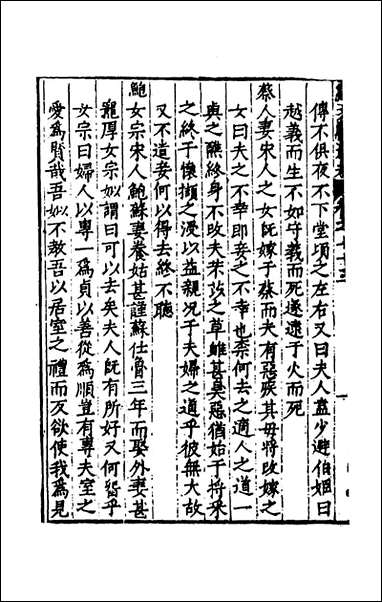 傳不俱夜不下堂頃之左右又曰夫人盍少避伯姬曰
越義而生不如守義而死遂逮于火而死
蔡人妻宋人之女旣嫁于蔡而夫有惡疾其毋將改嫁之
女曰夫之不幸卽妾之不幸也柰何去之適人之道一
與之醮終身不改夫采苢之草雖甚臭惡猶始于将采
之終于懐擷之浸以益親况于夫婦之道乎彼無大故
又不遣妾何以得去終不聽
鮑女宗宋人鮑蘇妻養姑甚謹蘇仕衛三年而娶外妻甚
寵厚女宗姒謂曰可以去矣夫人旣有所好又何留乎
女宗曰婦人以專一爲貞以善從爲順豈有專夫室之
愛爲賢哉吾姒不教吾以居室之禮而反欲使我爲見